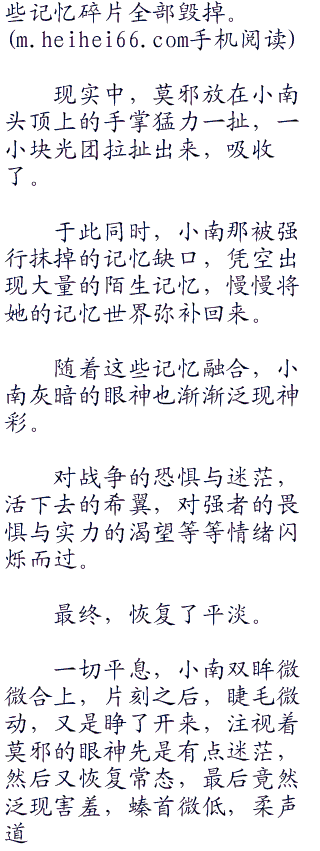 些记忆碎片全部毁掉。
(m.heihei66.com手机阅读)
现实中，莫邪放在小南
头顶上的手掌猛力一扯，一
小块光团拉扯出来，吸收
了。
于此同时，小南那被强
行抹掉的记忆缺口，凭空出
现大量的陌生记忆，慢慢将
她的记忆世界弥补回来。
随着这些记忆融合，小
南灰暗的眼神也渐渐泛现神
彩。
对战争的恐惧与迷茫，
活下去的希翼，对强者的畏
惧与实力的渴望等等情绪闪
烁而过。
最终，恢复了平淡。
一切平息，小南双眸微
微合上，片刻之后，睫毛微
动，又是睁了开来，注视着
莫邪的眼神先是有点迷茫，
然后又恢复常态，最后竟然
泛现害羞，螓首微低，柔声
道